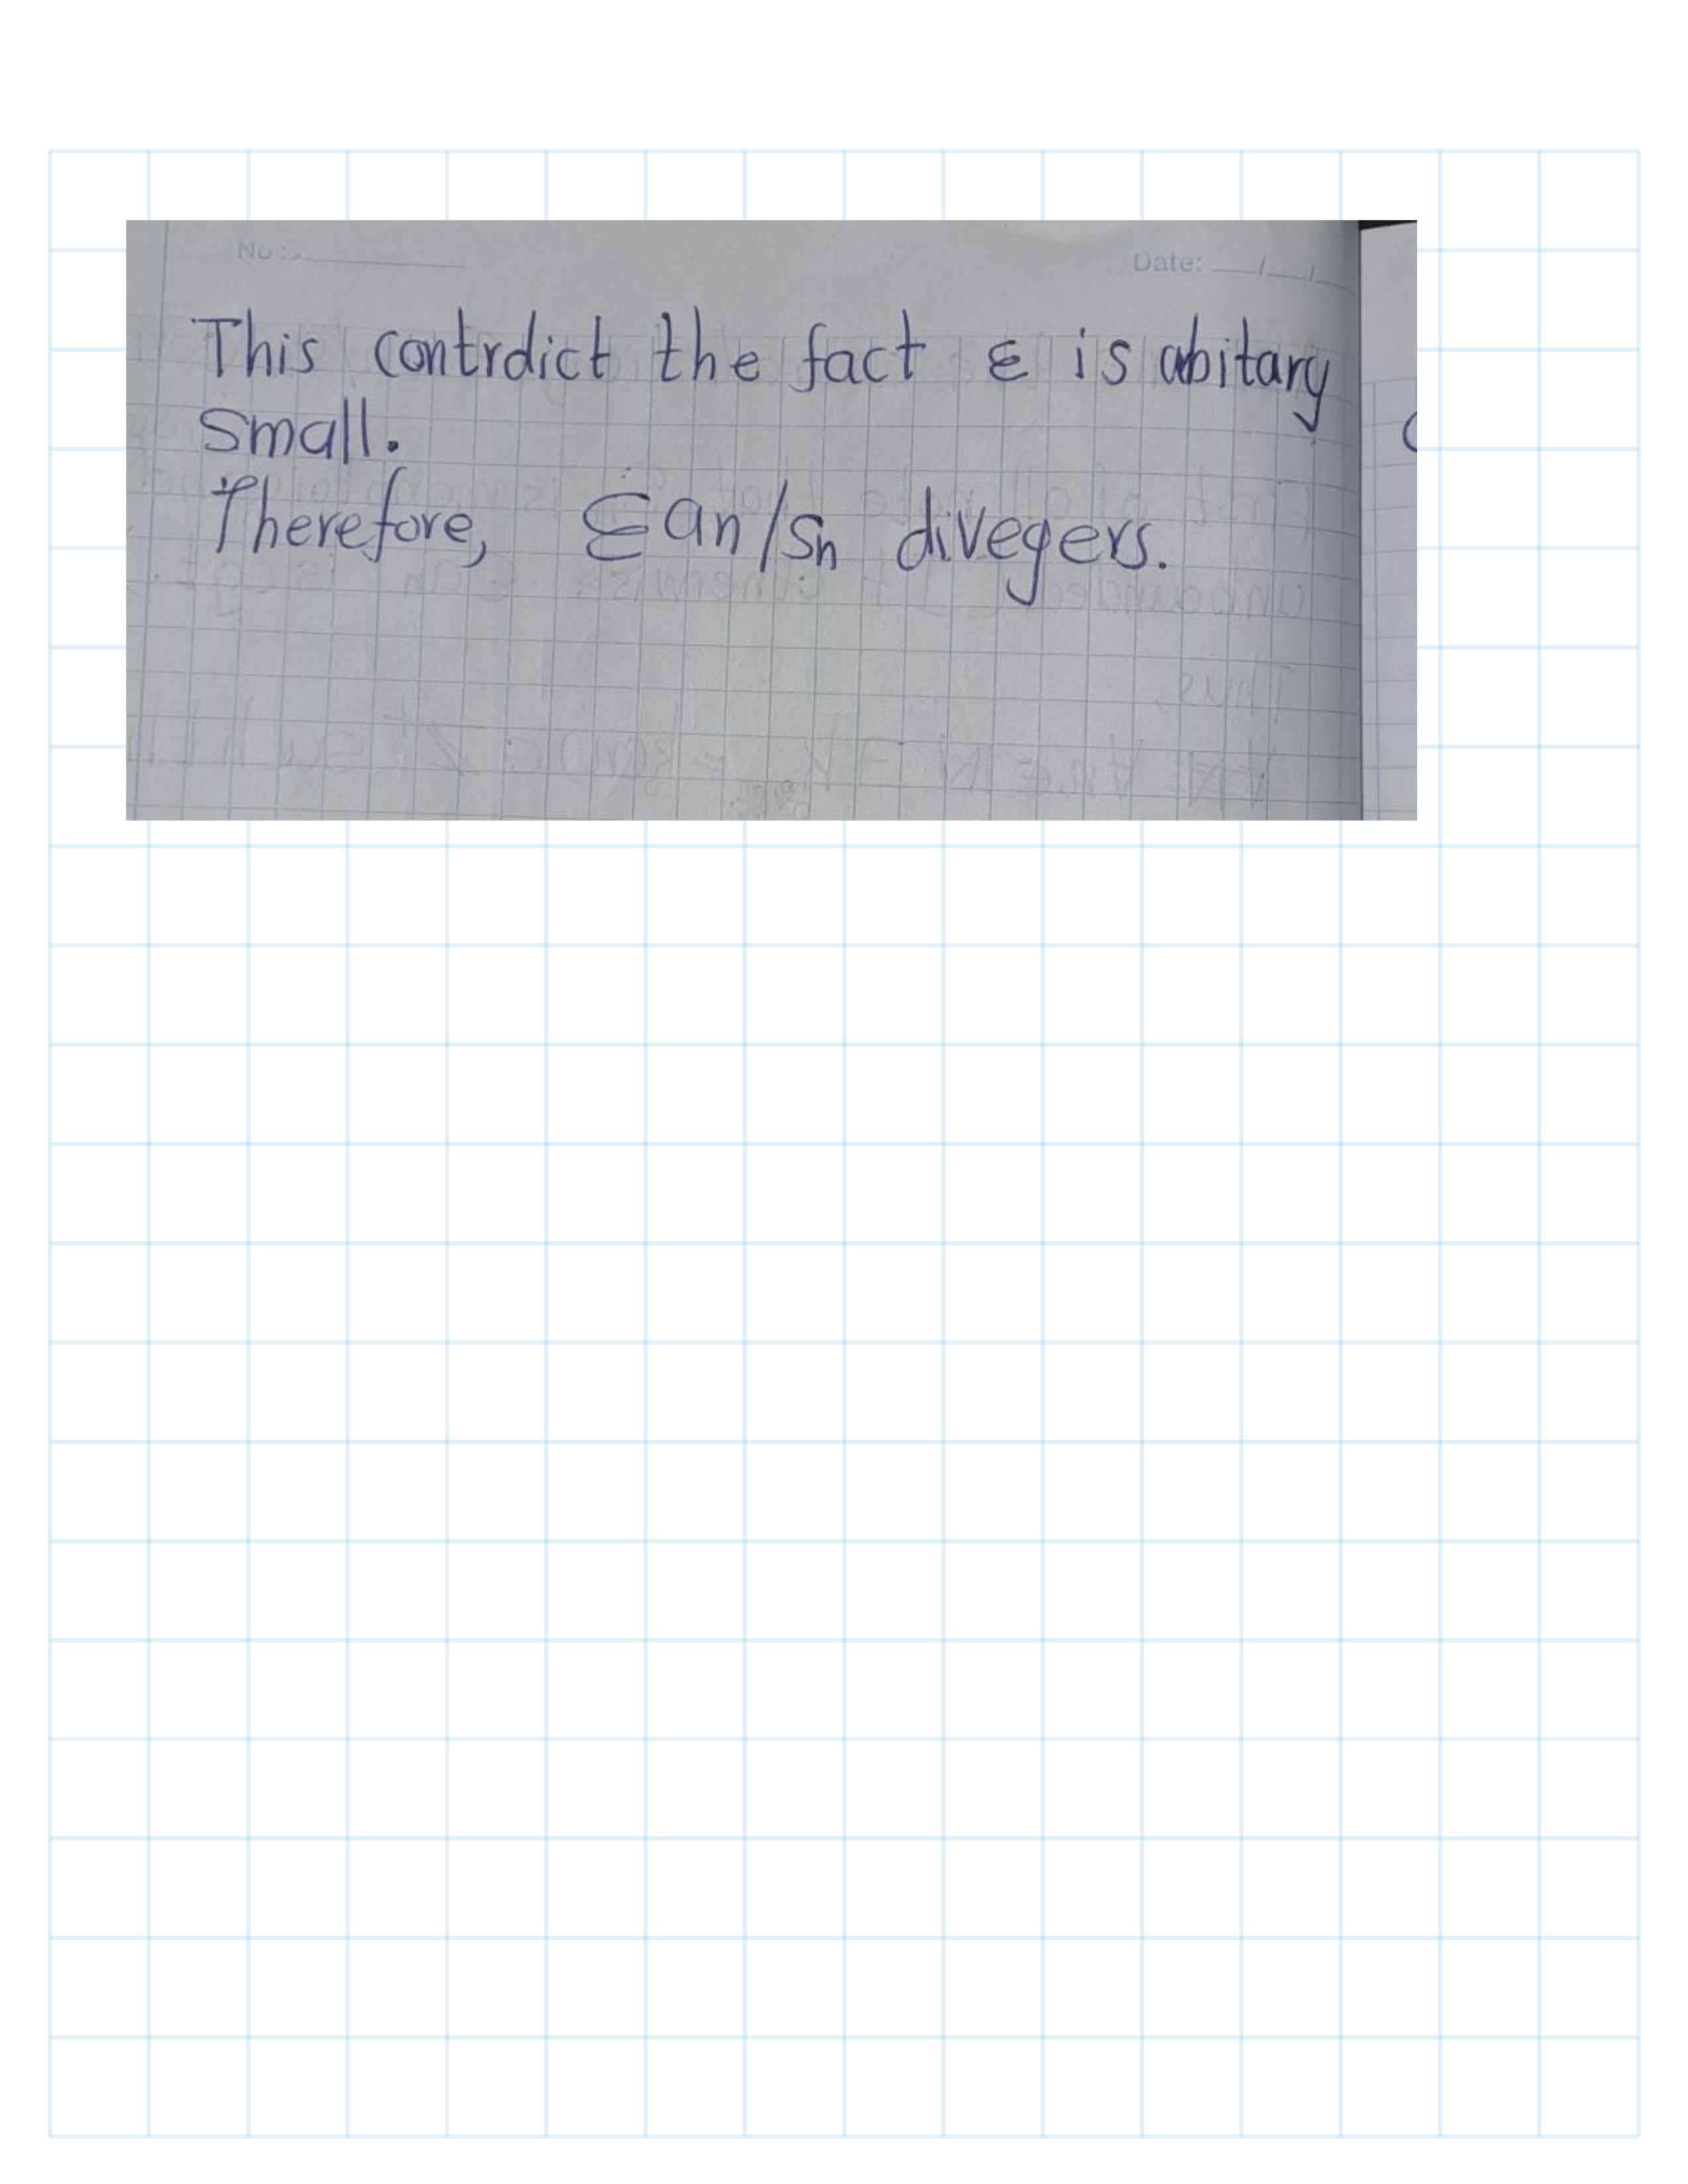 No:. Date: / /
This contrdict the fact ε is abitary
small.
Therefore, Σan/Sn divegers.